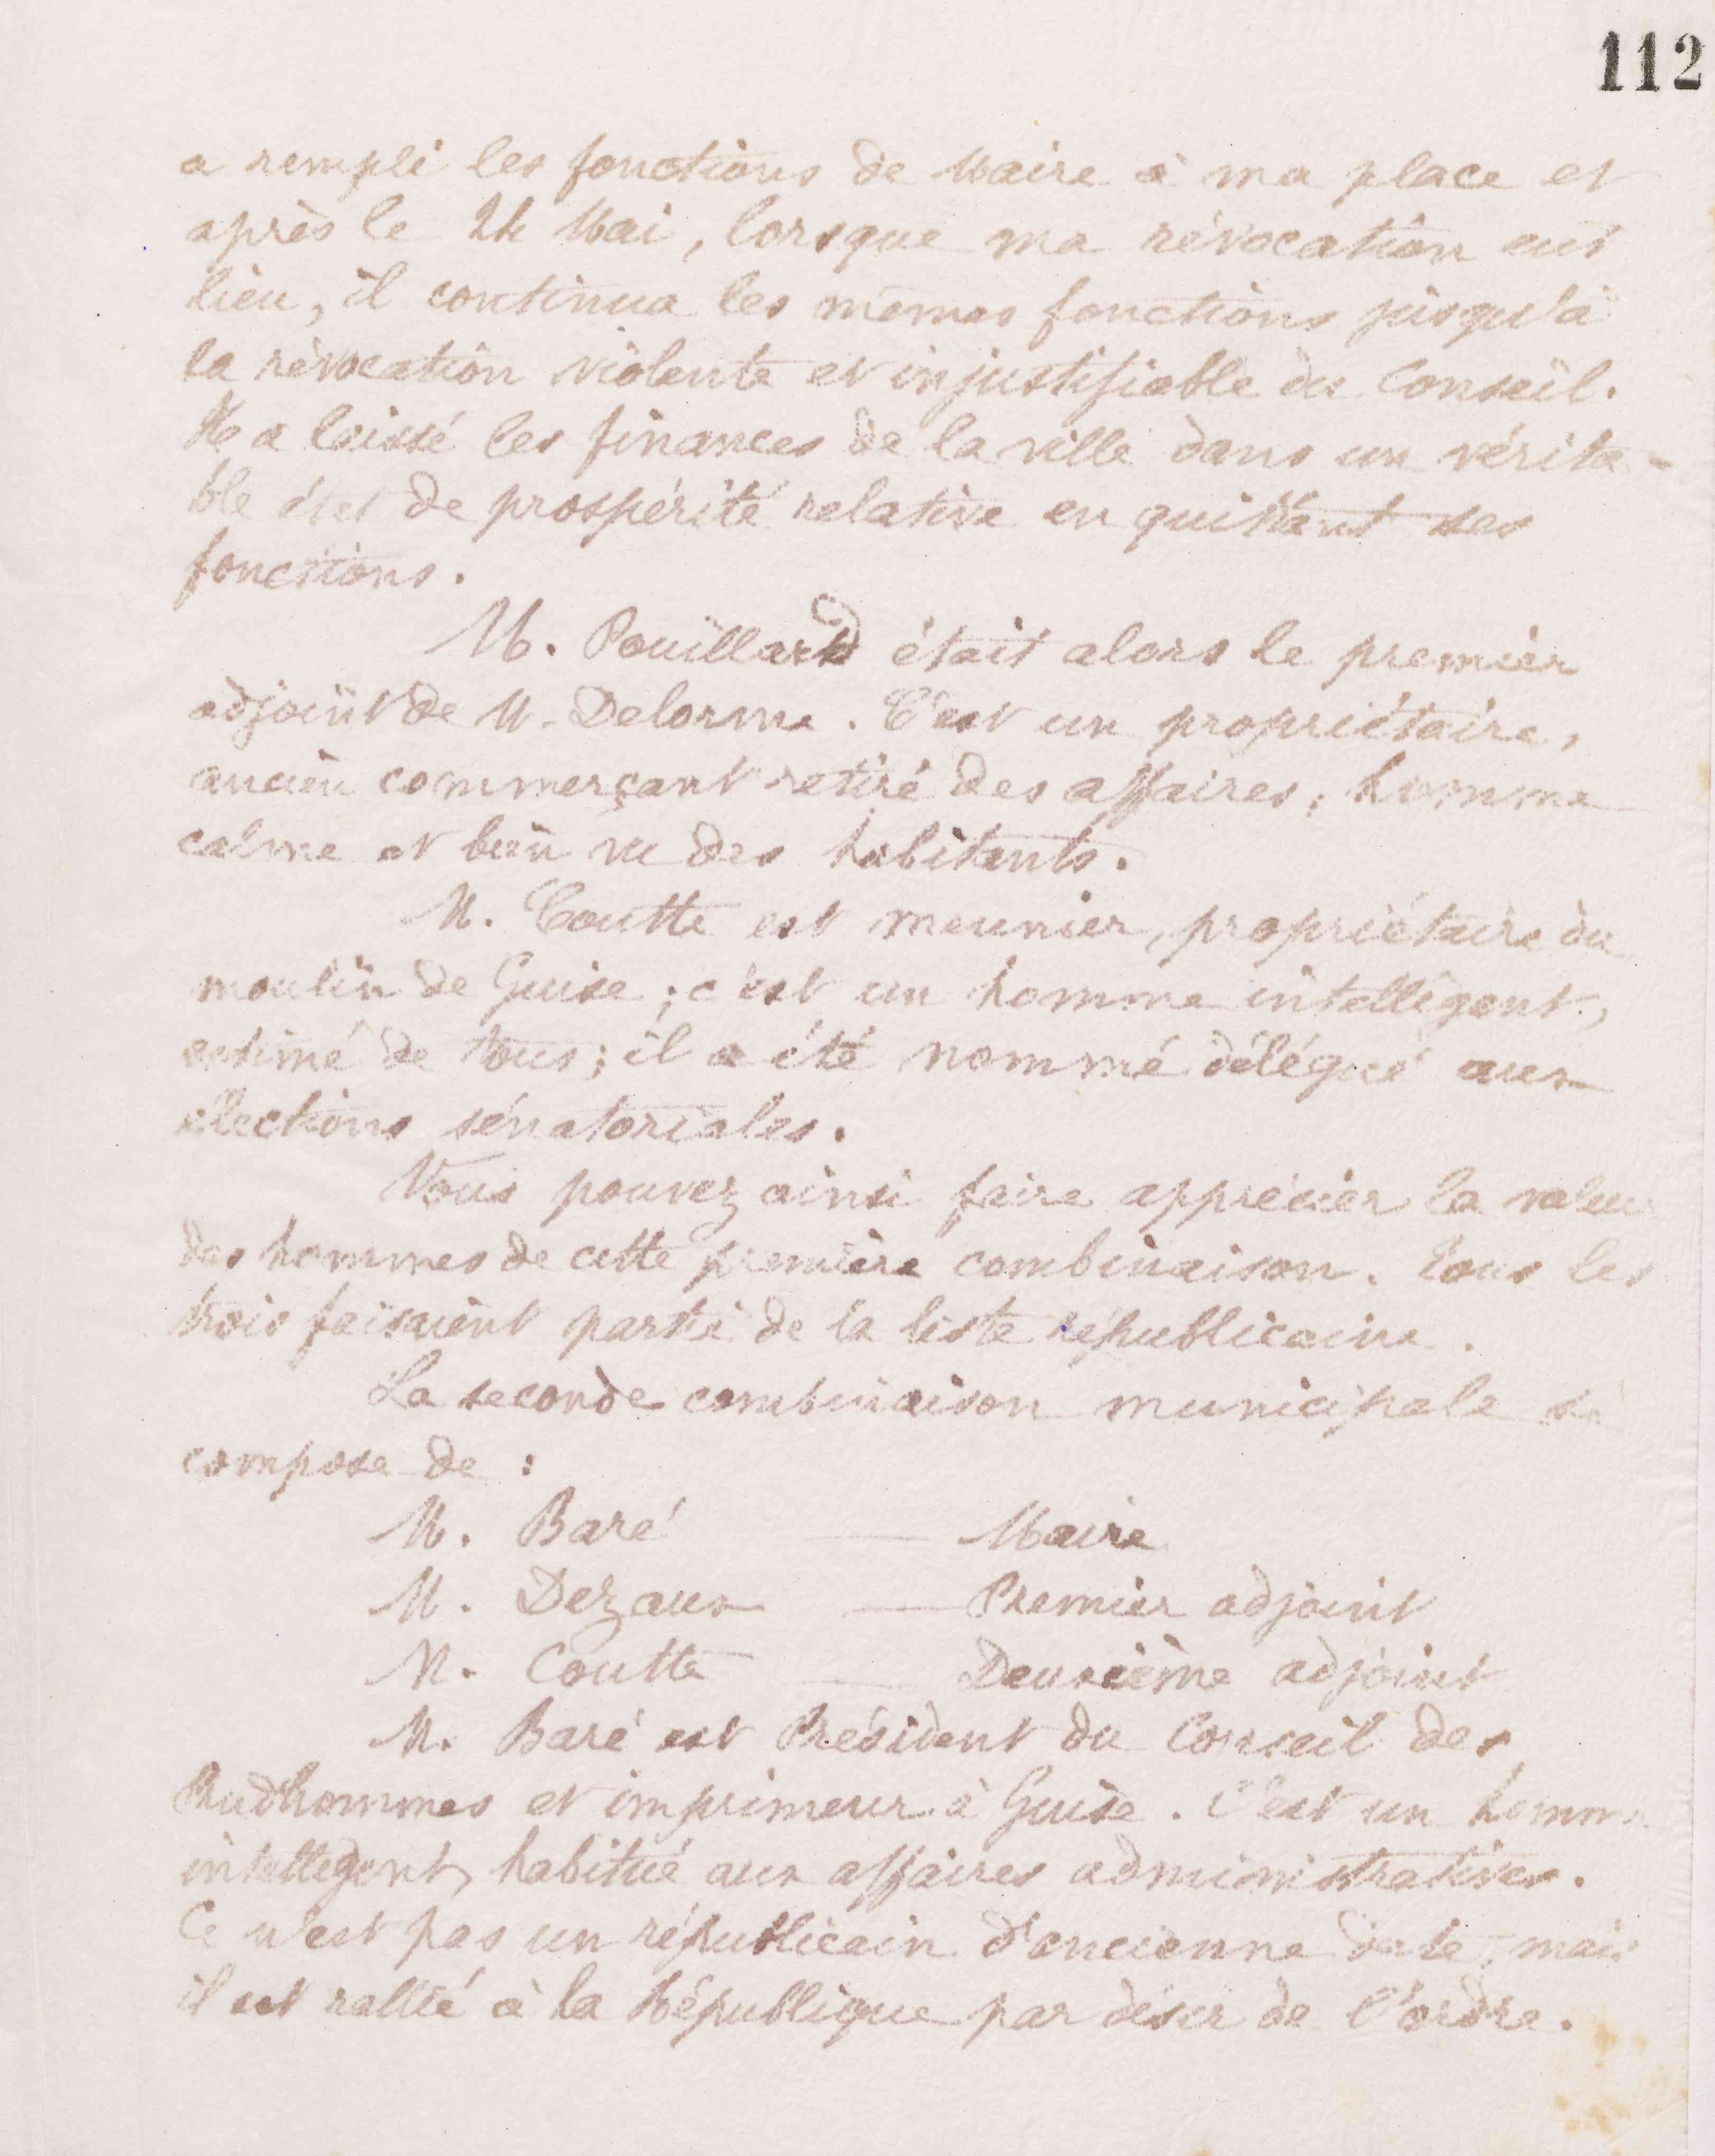 112
a rempli les fonctions de Maire à ma place et
après le 24 Mai, lorsque ma révocation eut
lieu, il continua les mêmes fonctions jusqu'à
la révocation violente et injustifiable du Conseil.
Il a laissé les finances de la ville dans un vérita-
ble état de prospérité relative en quittant ses
fonctions.
M. Pouillard était alors le premier
adjoint de M. Delorme. C'est un propriétaire,
ancien commerçant retiré des affaires, homme
calme et bien vu des habitants.
M. Coutte est meunier, propriétaire du
moulin de Guise; c'est un homme intelligent,
estimé de tous; il a été nommé délégué aux
élections sénatoriales.
Vous pouvez ainsi faire apprécier la valeur
des hommes de cette première combinaison. Tous les
trois faisaient partie de la liste républicaine.
La seconde combinaison municipale se
compose de :
M. Baré — Maire
M. Dezaux — Premier adjoint
M. Coutte — Deuxième adjoint
M. Baré est Président du Conseil des
Prudhommes et imprimeur à Guise. C'est un homme
intelligent, habitué aux affaires administratives.
Ce n'est pas un républicain d'ancienne date, mais
il est rallié à la République par désir de l'ordre.